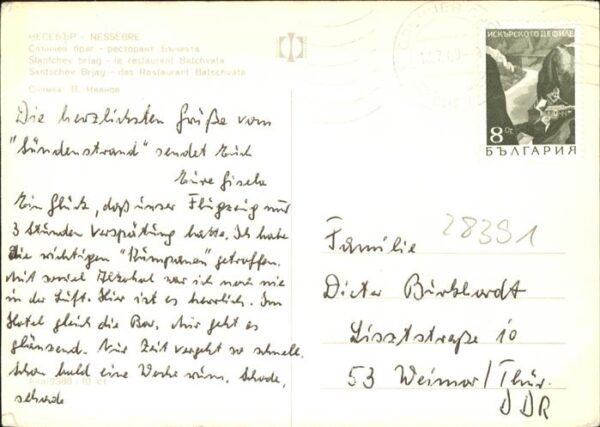 НЕСЕБЪР - NESSEBRE
Слънчев бряг - ресторант Бъчвата
Slantchev briag - le restaurant Batchvata
Santschev Brjag - das Restaurant Batschvata
Снимка: П. Иванов
Die herzlichsten Grüße vom
"Sündenstrand" sendet Euch
Eure Gisela
Ein Glück, daß unser Flugzeug nur
3 Stunden Verspätung hatte. Ich habe
die richtigen "Kumpanen" getroffen.
Mit soviel Alkohol war ich noch nie
in der Luft. Hier ist es herrlich. Im
Hotel gleich die Bar. Mir geht es
glänzend. Nur Zeit vergeht so schnelle.
Schon bald eine Woche rum. Schade,
schade
ИСКЪРСКОТО ДЕФИЛЕ
8 СТ.
БЪЛГАРИЯ
28391
Familie
Dieter Birkhardt
Lisztstraße 10
53 Weimar/Thür.
DDR